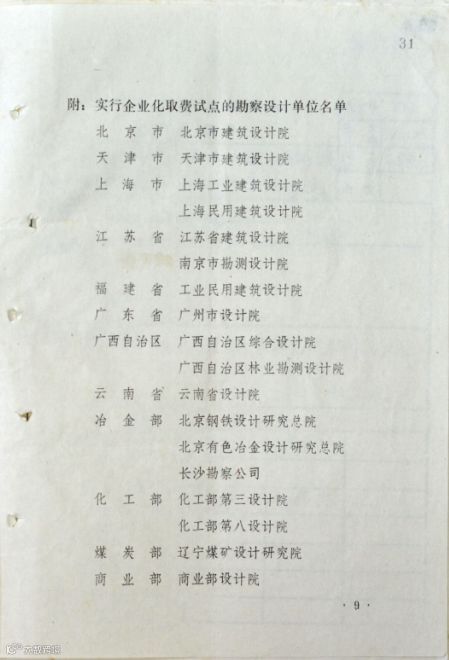 31
附：实行企业化取费试点的勘察设计单位名单
北京市 北京市建筑设计院
天津市 天津市建筑设计院
上海市 上海工业建筑设计院
上海民用建筑设计院
江苏省 江苏省建筑设计院
南京市勘测设计院
福建省 工业民用建筑设计院
广东省 广州市设计院
广西自治区 广西自治区综合设计院
广西自治区林业勘测设计院
云南省 云南省设计院
冶金部 北京钢铁设计研究总院
北京有色冶金设计研究总院
长沙勘察公司
化工部 化工部第三设计院
化工部第八设计院
煤炭部 辽宁煤矿设计研究院
商业部 商业部设计院
·9·